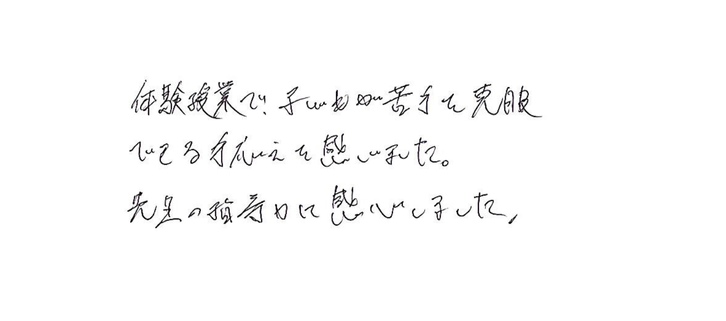 体験授業で、子どもが苦手を克服
できる手応えを感じました。
先生の指導力に感心しました。